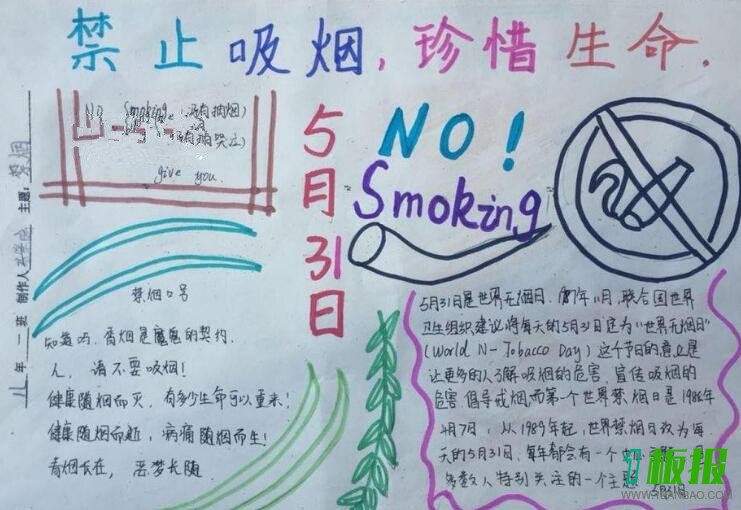 禁止吸烟,珍惜生命.
主题:禁烟
制作人
八年二班
No Smoking
give you.
5月31日
NO!
Smoking
禁烟口号
知道吗,香烟是魔鬼的契约.
人,请不要吸烟!
健康随烟而灭,有多少生命可以重来!
健康随烟而逝,病痛随烟而生!
香烟长在,恶梦长随
5月31日是世界无烟日.
年11月,联合国世界
卫生组织建议将每天的5月31日定为"世界无烟日"
(World N- Tobacco Day)这个节日的意义是
让更多的人了解吸烟的危害 宣传吸烟的
危害 倡导戒烟而第一个世界禁烟日是1988年
4月7日,从1989年起,世界禁烟日改为每
天的5月31日,每年都会有一个
多数人特别关注的一个主题
5月31日
板报
www.1BANBAO.COM